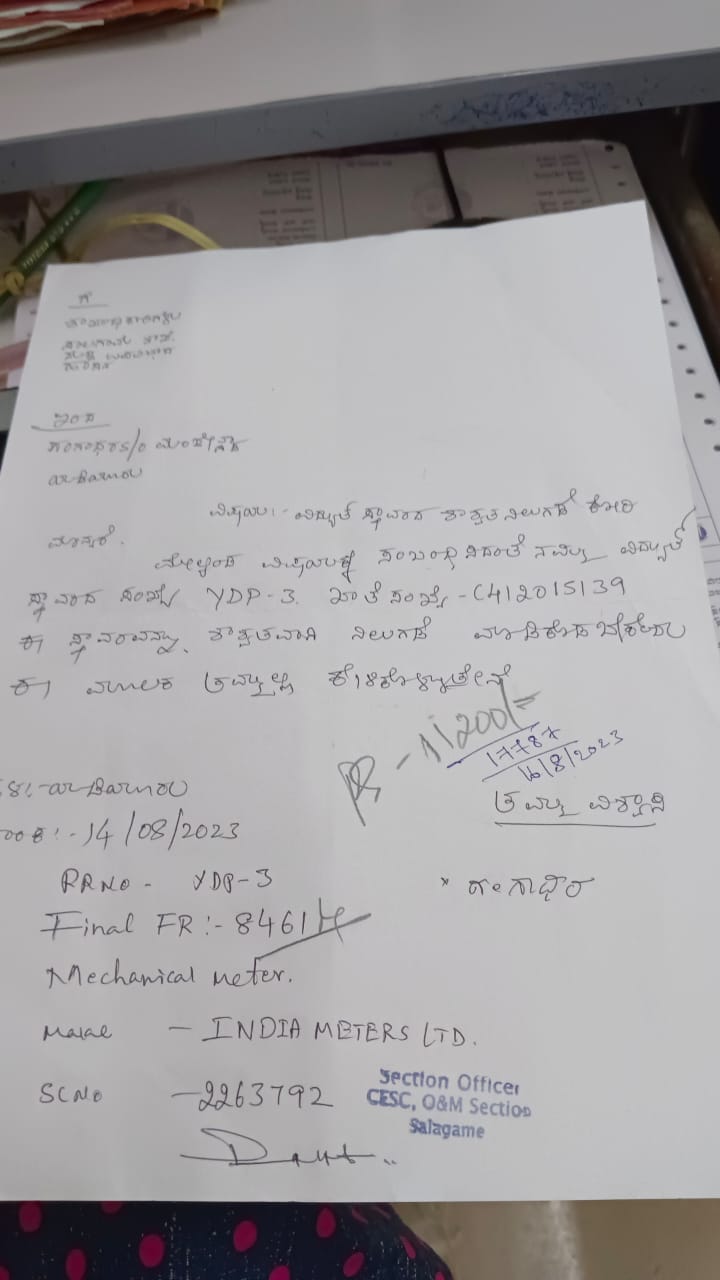 ಗೆ
ಇಂದ
ಗಂಗಾಧರ S/o
ವಿಷಯ:- ವಿದ್ಯುತ್ ಸ್ಥಾವರದ ಶಾಶ್ವತ ನಿಲುಗಡೆ ಕೋರಿ
ಮಾನ್ಯರೆ.
ಮೇಲ್ಕಂಡ ವಿಷಯಕ್ಕೆ ಸಂಬಂಧಿಸಿದಂತೆ ನಮ್ಮ ವಿದ್ಯುತ್
ಸ್ಥಾವರದ ಸಂಖ್ಯೆ YDP-3. ಖಾತೆ ಸಂಖ್ಯೆ - C412015139
ಈ ಸ್ಥಾವರವನ್ನು ಶಾಶ್ವತವಾಗಿ ನಿಲುಗಡೆ ಮಾಡಿಕೊಡಬೇಕೆಂದು
ಈ ಮೂಲಕ ತಮ್ಮಲ್ಲಿ ಕೇಳಿಕೊಳ್ಳುತ್ತೇನೆ
1200/=
17787
16/8/2023
ತಮ್ಮ ವಿಶ್ವಾಸಿ
14/08/2023
RRNo - YDP-3
* ಗಂಗಾಧರ
Final FR :- 8461
Mechanical meter.
Make - INDIA METERS LTD.
SCNo - 2263792
Section Officer
CESC, O&M Section
Salagame